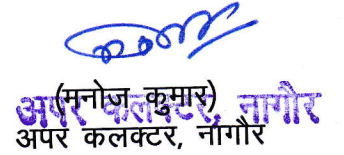 (मनोज कुमार)
अपर कलक्टर, नागौर
अपर कलक्टर, नागौर